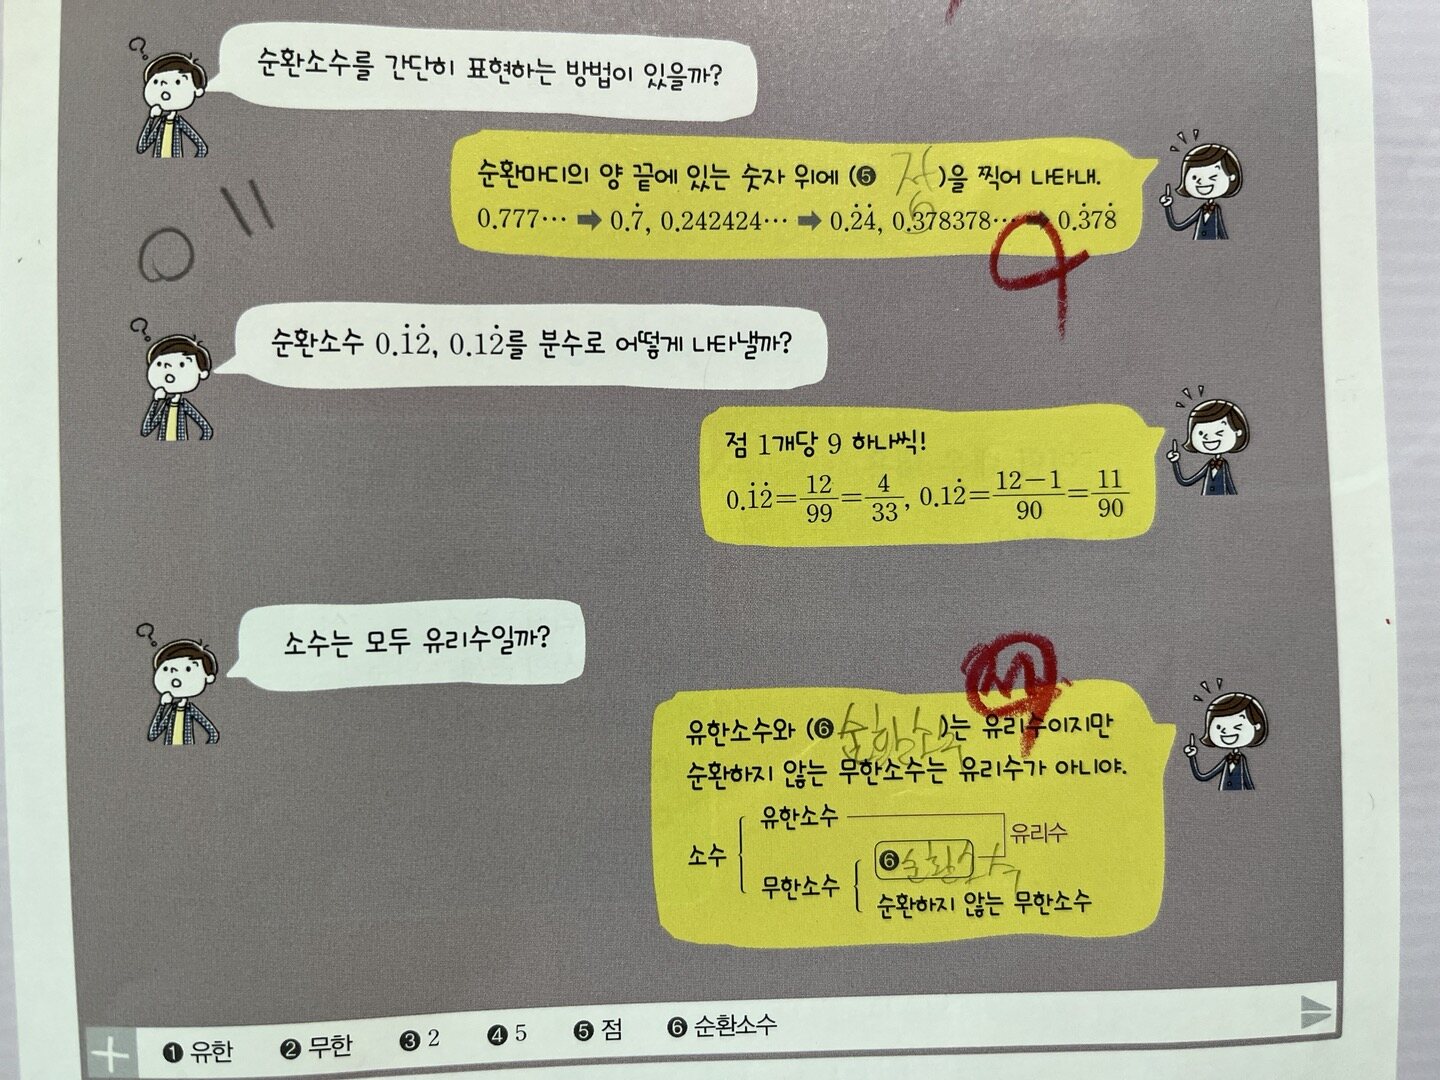 순환소수를 간단히 표현하는 방법이 있을까?
순환마디의 양 끝에 있는 숫자 위에 (❺ 점)을 찍어 나타내.
0.777⋯ ➡ 0.7̇, 0.242424⋯ ➡ 0.2̇4̇, 0.378378⋯ ➡ 0.3̇78̇
순환소수 0.1̇2̇, 0.12̇를 분수로 어떻게 나타낼까?
점 1개당 9 하나씩!
0.1̇2̇=12/99=4/33, 0.12̇=12-1/90=11/90
소수는 모두 유리수일까?
유한소수와 (❻ 순환소수)는 유리수이지만
순환하지 않는 무한소수는 유리수가 아니야.
유한소수
유리수
소수
❻ 순환소수
무한소수
순환하지 않는 무한소수
❶ 유한 ❷ 무한 ❸ 2 ❹ 5 ❺ 점 ❻ 순환소수